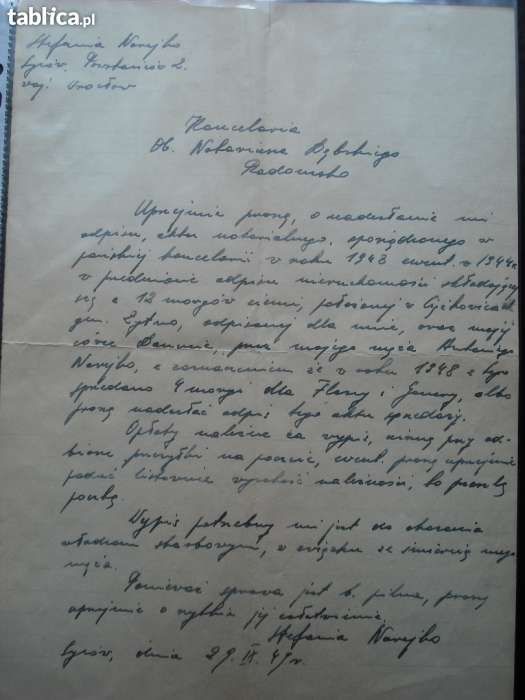 tablica.pl
Stefania Narejko
Syców, Powstańców 2.
woj. Wrocław
Kancelaria
Ob. Notariusza Dębskiego
Radomsko
Uprzejmie proszę, o nadesłanie mi
odpisu, aktu notarialnego, sporządzonego w
pańskiej kancelarii w roku 1943 ewent. w 1944 r.
w przedmiocie odpisu nieruchomości składającej
się z 12 morgów ziemi, położonej w
gm. Żytno, odpisanej dla mnie, oraz mojej
córce Danucie, przez mojego męża Antoniego
Narejko, z zaznaczeniem że w roku 1948 z tego
sprzedano 4 morgi dla Flory i Genowefy, albo
proszę nadesłać odpis tego aktu sprzedaży.
Opłaty należne za wypis, uiszczę przy od-
biorze przesyłki na poczcie, ewent. proszę uprzejmie
podać listownie wysokość należności, to prześlę
pocztą.
Wypis potrzebny mi jest do okazania
władzom skarbowym, w związku ze śmiercią mego
męża.
Ponieważ sprawa jest b. pilna, proszę
uprzejmie o szybkie jej załatwienie.
Stefania Narejko
Syców, dnia 29. IX. 49 r.